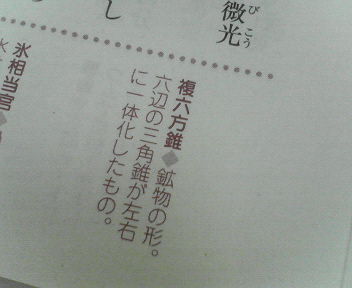 微光
びこう
し
複六方錐◆鉱物の形。
六辺の三角錐が左右
に一体化したもの。
氷相当官◆